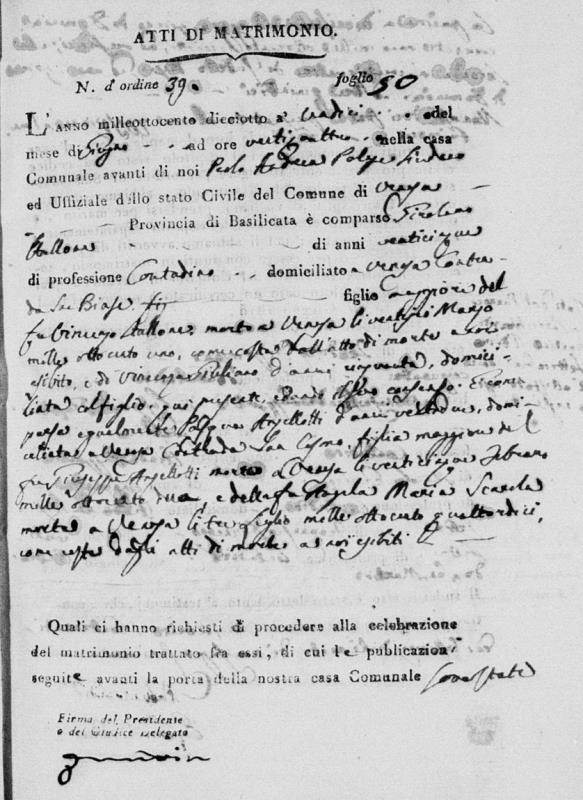 ATTI DI MATRIMONIO.
N. d'ordine 39. foglio 50
L'ANNO milleottocento dieciotto a' tredici del
mese di Giugno ad ore venti quattro nella casa
Comunale avanti di noi Paolo Andrea Sindaco
ed Uffiziale dello stato Civile del Comune di
Provincia di Basilicata è comparso Girolamo
di anni venticinque
di professione Contadino domiciliato a Contra-
da San Biase figlio maggiore del
fu Vincenzo morto a li venti Marzo
mille ottocento uno, come costa dall'atto di morte a noi
esibito, e di Giuliano d'anni cinquanta, domici-
liata col figlio, qui presente, e consenso. E com-
parsa egualmente Angelotti d'anni ventidue, domi-
ciliata a Contrada San Cosmo, figlia maggiore del
fu Giuseppe Angelotti morto a li venticinque Febraro
mille ottocento due e della fu Angela Maria Scarola
morta a li tre Luglio mille ottocento quattordici,
come costa dagli atti di morte a noi esibiti
Quali ci hanno richiesti di procedere alla celebrazione
del matrimonio trattato fra essi, di cui le publicazioni
seguite avanti la porta della nostra casa Comunale sono state
Firma del Presidente
o del Giudice Delegato